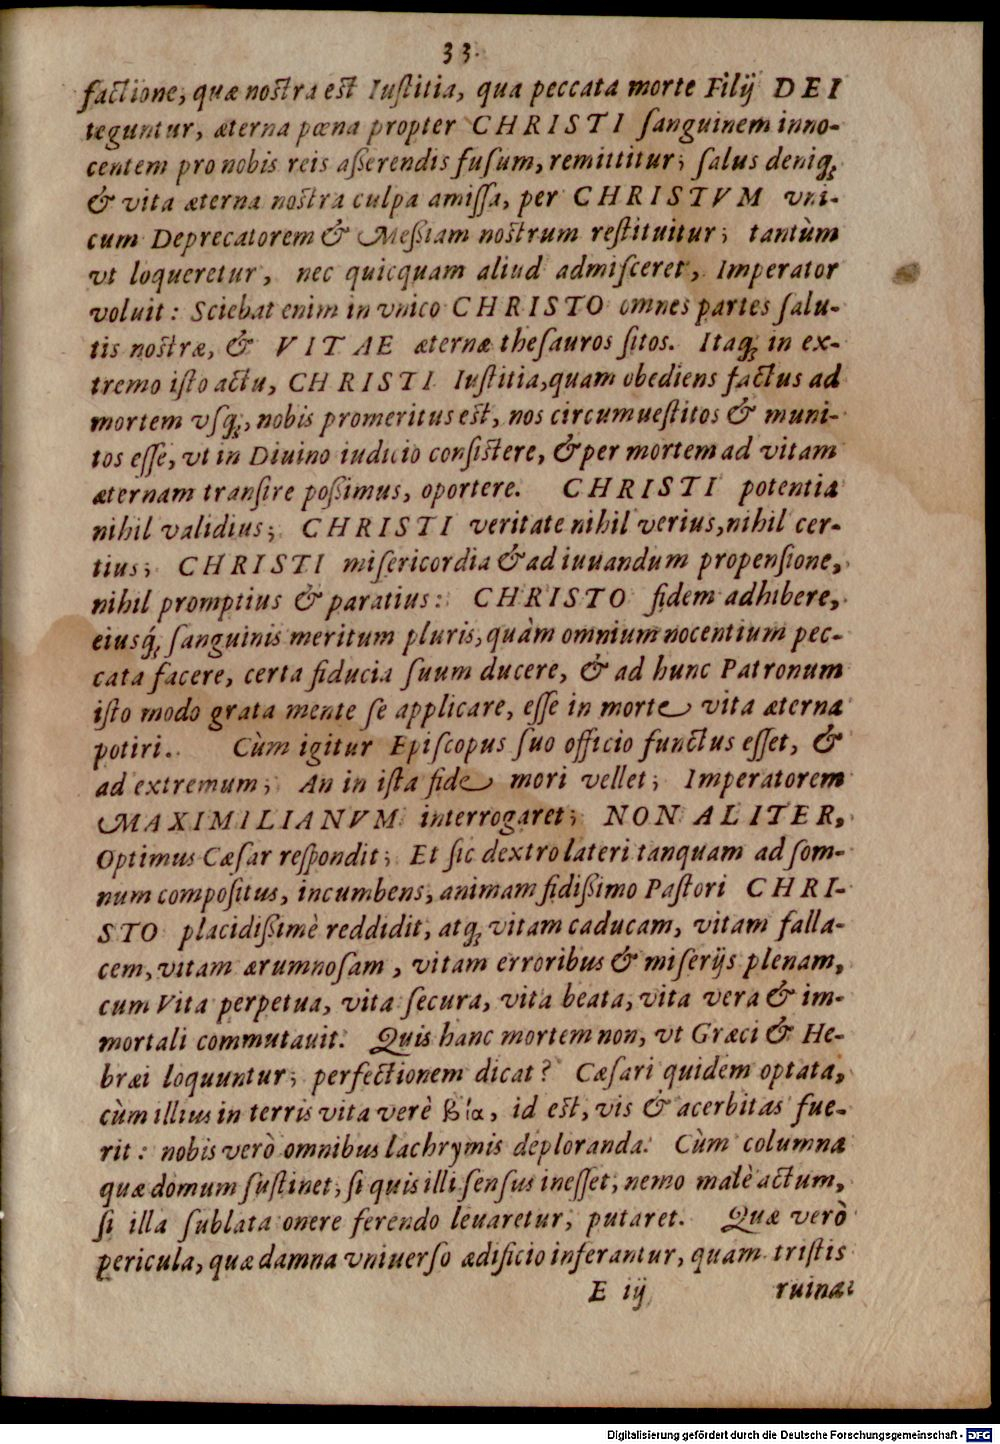 33.
factione, quæ nostra est Iustitia, qua peccata morte Filij DEI
teguntur, æterna pœna propter CHRISTI sanguinem inno-
centem pro nobis reis aßerendis fusum, remittitur; salus deniq́;
& vita æterna nostra culpa amissa, per CHRISTVM vni-
cum Deprecatorem & Meßiam nostrum restituitur; tantùm
vt loqueretur, nec quicquam aliud admisceret, Imperator
voluit: Sciebat enim in vnico CHRISTO omnes partes salu-
tis nostræ, & VITAE æternæ thesauros sitos. Itaq; in ex-
tremo isto actu, CHRISTI Iustitia, quam obediens factus ad
mortem vsq́;, nobis promeritus est, nos circumuestitos & muni-
tos esse, vt in Diuino iudicio consistere, & per mortem ad vitam
æternam transire poßimus, oportere. CHRISTI potentia
nihil validius; CHRISTI veritate nihil verius, nihil cer-
tius; CHRISTI misericordia & ad iuuandum propensione,
nihil promptius & paratius: CHRISTO fidem adhibere,
eiusq́; sanguinis meritum pluris, quàm omnium nocentium pec-
cata facere, certa fiducia suum ducere, & ad hunc Patronum
isto modo grata mente se applicare, esse in morte vita æterna
potiri. Cùm igitur Episcopus suo officio functus esset, &
ad extremum; An in ista fide mori vellet; Imperatorem
MAXIMILIANVM interrogaret; NON ALITER,
Optimus Cæsar respondit; Et sic dextro lateri tanquam ad som-
num compositus, incumbens, animam fidißimo Pastori CHRI-
STO placidißimè reddidit, atq́; vitam caducam, vitam falla-
cem, vitam ærumnosam, vitam erroribus & miserijs plenam,
cum Vita perpetua, vita secura, vita beata, vita vera & im-
mortali commutauit. Quis hanc mortem non, vt Græci & He-
bræi loquuntur, perfectionem dicat? Cæsari quidem optata,
cùm illius in terris vita verè βία, id est, vis & acerbitas fue-
rit: nobis verò omnibus lachrymis deploranda. Cùm columna
quæ domum sustinet, si quis illi sensus inesset, nemo malè actum,
si illa sublata onere ferendo leuaretur, putaret. Quæ verò
pericula, quæ damna vniuerso ædificio inferantur, quam tristis
E iij ruina:
Digitalisierung gefördert durch die Deutsche Forschungsgemeinschaft - DFG